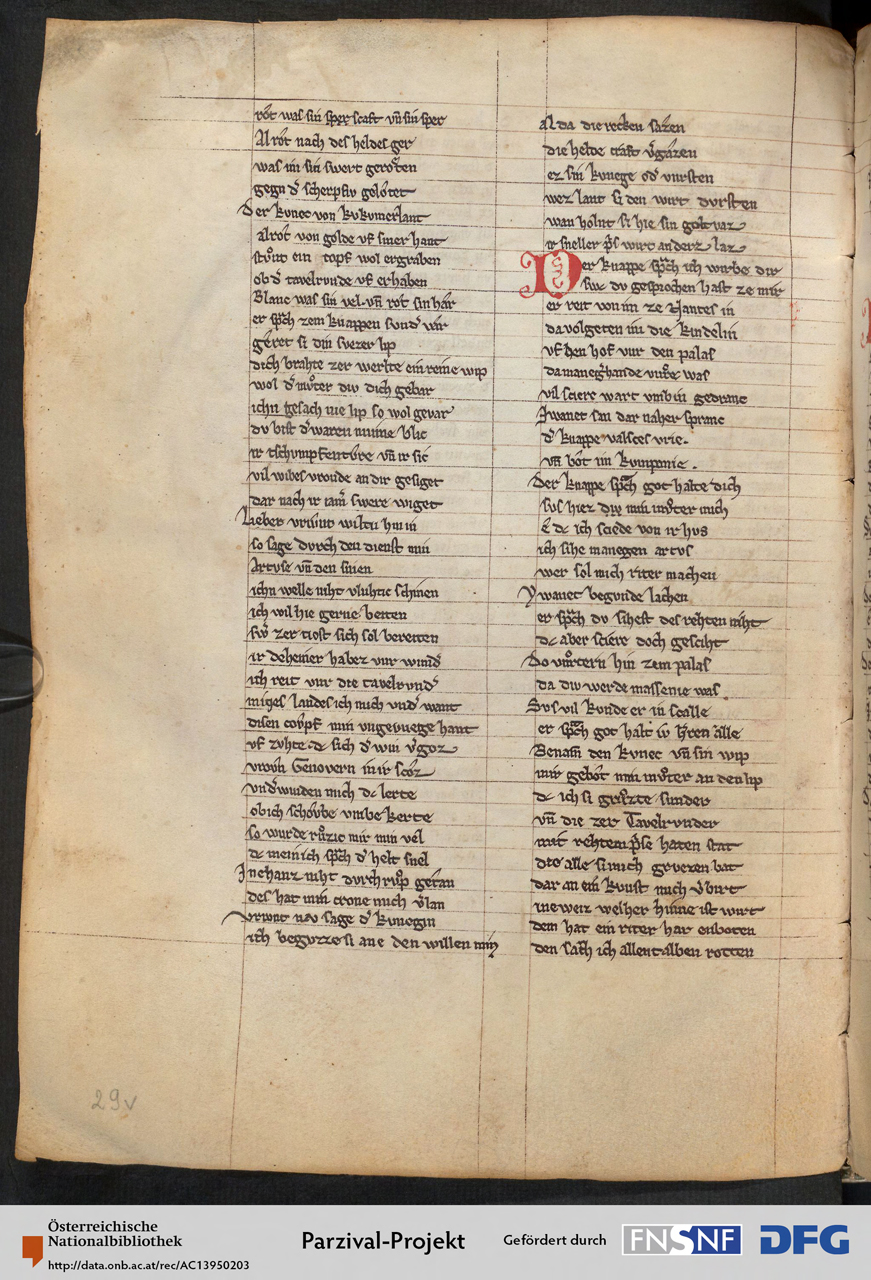 rôt was sin sper scaft vn̄ sin sper
Al rôt nach des heldes ger
was im sin swert gerôten
gegn d͛ scherpfv gelôtet
Der kvnec von kvkvmerlant
alrôt von golde vf siner hant
stv̊nt ein topf wol ergraben
ob d͛ tavelrvnde vf erhaben
Blanc was sin vel vn̄ rot sin hâr
er sp̄ch zem knappen svnd͛ vâr
geret si din svezer lip
dich brahte zer werlte ein reine wip
wol d͛ mv̊ter div dich gebar
ichn gesach nie lip so wol gevar
dv bist d͛ waren minne blic
ir tschvmpfentivre vn̄ ir sic
vil wibes vrovde an dir gesiget
dar nach ir iam͛ swere wiget
Lieber vrivnt wiltu hin in
so sage dvrch den dienst min
Artvse vn̄ den sinen
ichn welle niht vluhtic schinen
ich wil hie gerne beiten
sw͛ zer tiost sich sol bereiten
ir deheiner habez vur wund͛
ich reit vur die tavelrvnd͛
mines landes ich mich vnd͛ want
disen copf min vngevuege hant
vf zvhte dc sich d͛ win v͛goz
vrovn Genovern in ir scôz
vnd͛winden mich dc lerte
ob ich schovbe vmbe kerte
so wurde rv̊zic mir min vel
dc meit ich sp̄ch d͛ helt snel
Ine hanz niht dvrch rv̊p getan
des hat min crone mich v͛lan
vrivnt nv sage d͛ kvnegin
ich begvzze si ane den willen min
al da die recken sâzen
die helde craft v͛gâzen
ez sin kvnege od͛ vursten
wez lant si den wirt dvrsten
wan holnt si hie sin goltvaz
ir sneller p͛s wirt anderz laz
Der knappe sp̄ch ich wirbe dir
swc dv gesprochen hast ze mir
er reit von im ze Nantes in
da volgeten im die kindelin
vf den hof vur den palas
da maneg͛hande vuͦre was
vil sciere wart vmb in gedranc
Iwanet san dar naher spranc
d͛ knappe valsces vrie.
vn̄ bôt im kvmpanie.
Der knappe sp̄ch got halte dich
svs hiez div min mv̊ter mich
ê dc ich sciede von ir hvs
ich sihe manegen artvs
wer sol mich riter machen
Ywanet begvnde lachen
er sp̄ch dv sihest des rehten niht
dc aber sciere doch gesciht
Do vuͦrtern hin zem palas
da div werde massenie was
Svs vil kvnde er in scalle
er sp̄ch got halt iv h͛ren alle
Benam̄ den kvnec vn̄ sin wip
mir gebôt min mv̊ter an den lip
dc ich si grv̊zte svnder
vn̄ die zer Tavelrvnder
mit rehtem p͛se haten stat
die alle si mich grvezen bat
dar an ein kvnst mich v͛birt
ine weiz welher hinne ist wirt
dem hat ein riter har enboten
den sach ich allenthalben rotten
29v
Österreichische
Nationalbibliothek
http://data.onb.ac.at/rec/AC13950203
Parzival-Projekt
Gefördert durch
FNSNF
DFG